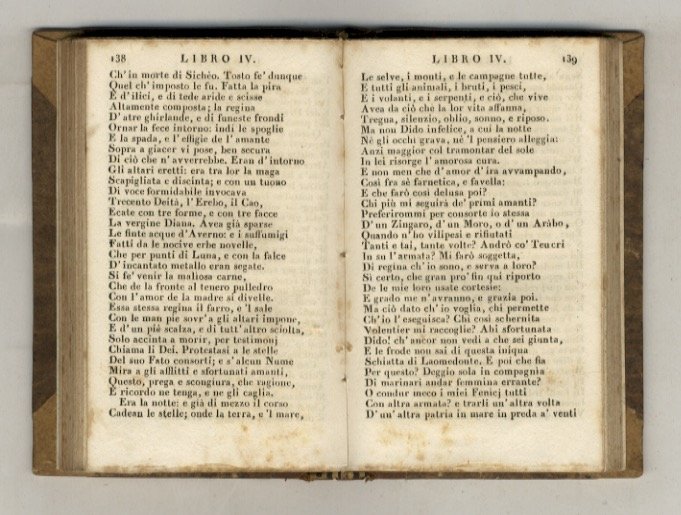 138 LIBRO IV.
Ch' in morte di Sichèo. Tosto fe' dunque
Quel ch' imposto le fu. Fatta la pira
E d' ilici, e di tede aride e scisse
Altamente composta; la regina
D' atre ghirlande, e di funeste frondi
Ornar la fece intorno: indi le spoglie
E la spada, e l' effigie de l' amante
Sopra a giacer vi pose, ben secura
Di ciò che n' avverrebbe. Eran d' intorno
Gli altari eretti: era tra lor la maga
Scapigliata e discinta; e con un tuono
Di voce formidabile invocava
Trecento Deità, l' Erebo, il Cao,
Ecate con tre forme, e con tre facce
La vergine Diana. Avea già sparse
Le finte acque d' Averno: e i suffumigi
Fatti da le nocive erbe novelle,
Che per punti di Luna, e con la falce
D' incantato metallo eran segate.
Si fe' venir la maliosa carne,
Che de la fronte al tenero pulledro
Con l' amor de la madre si divelle.
Essa stessa regina il farro, e 'l sale
Con le man pie sovr' a gli altari impone,
E d' un piè scalza, e di tutt' altro sciolta,
Solo accinta a morir, per testimonj
Chiama li Dei. Protestasi a le stelle
Del suo Fato consorti; e s' alcun Nume
Mira a gli afflitti e sfortunati amanti,
Questo, prega e scongiura, che ragione,
E ricordo ne tenga, e ne gli caglia.
Era la notte: e già di mezzo il corso
Cadean le stelle; onde la terra, e 'l mare,
LIBRO IV. 139
Le selve, i monti, e le campagne tutte,
E tutti gli animali, i bruti, i pesci,
E i volanti, e i serpenti, e ciò, che vive
Avea da ciò che la lor vita affanna,
Tregua, silenzio, oblio, sonno, e riposo.
Ma non Dido infelice, a cui la notte
Nè gli occhi grava, nè 'l pensiero alleggia:
Anzi maggior col tramontar del sole
In lei risorge l' amorosa cura.
E non men che d' amor d' ira avvampando,
Così fra sè farnetica, e favella:
E che farò così delusa poi?
Chi più mi seguirà de' primi amanti?
Preferirommi per consorte io stessa
D' un Zingaro, d' un Moro, o d' un Aràbo,
Quando n' ho vilipesi e rifiutati
Tanti e tai, tante volte? Andrò co' Teucri
In su l' armata? Mi farò soggetta,
Di regina ch' io sono, e serva a loro?
Sì certo, che gran pro' fin qui riporto
De le mie loro usate cortesie:
E grado me n' avranno, e grazia poi.
Ma ciò dato ch' io voglia, chi permette
Ch' io l' eseguisca? Chi così schernita
Volentier mi raccoglie? Ahi sfortunata
Dido! ch' ancor non vedi a che sei giunta,
E le frode non sai di questa iniqua
Schiatta di Laomedonte. E poi che fia
Per questo? Deggio sola in compagnia
Di marinari andar femmina errante?
O condur meco i miei Fenicj tutti
Con altra armata? e trarli un' altra volta
D' un' altra patria in mare in preda a' venti